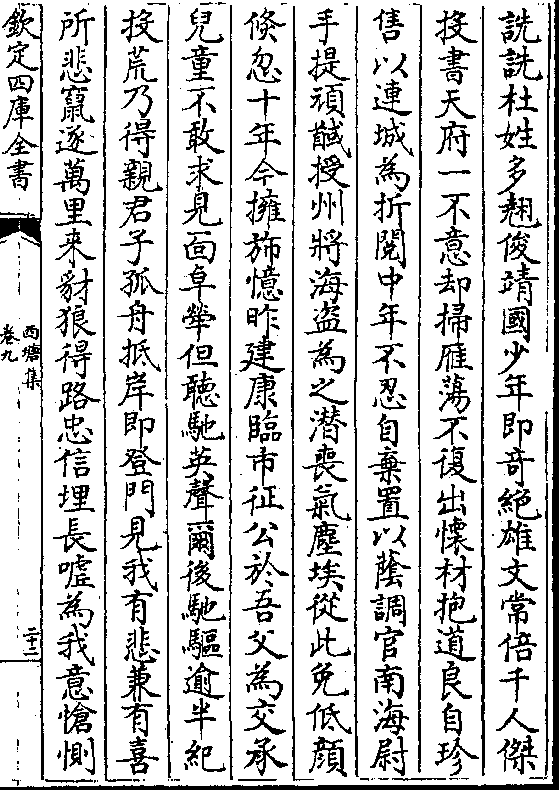 詵詵杜姓多翹俊靖國少年即竒絕雄文常倍千人傑
投書天府一不意却掃雁蕩不復出懐材抱道良自珍
售以連城為折閱中年不忍自棄置以蔭調官南海尉
手提頑馘授州將海盜為之潛喪氣塵埃從此免低顔
倐忽十年今擁斾憶昨建康臨市征公於吾父為交承
兒童不敢求見面阜犖但聽馳英聲爾後馳驅逾半紀
投荒乃得親君子孤舟抵岸即登門見我有悲兼有喜
所悲竄逐萬里來豺狼得路忠信埋長嘘為我意愴惻
欽定四庫全書
西塘集
卷九
二十二